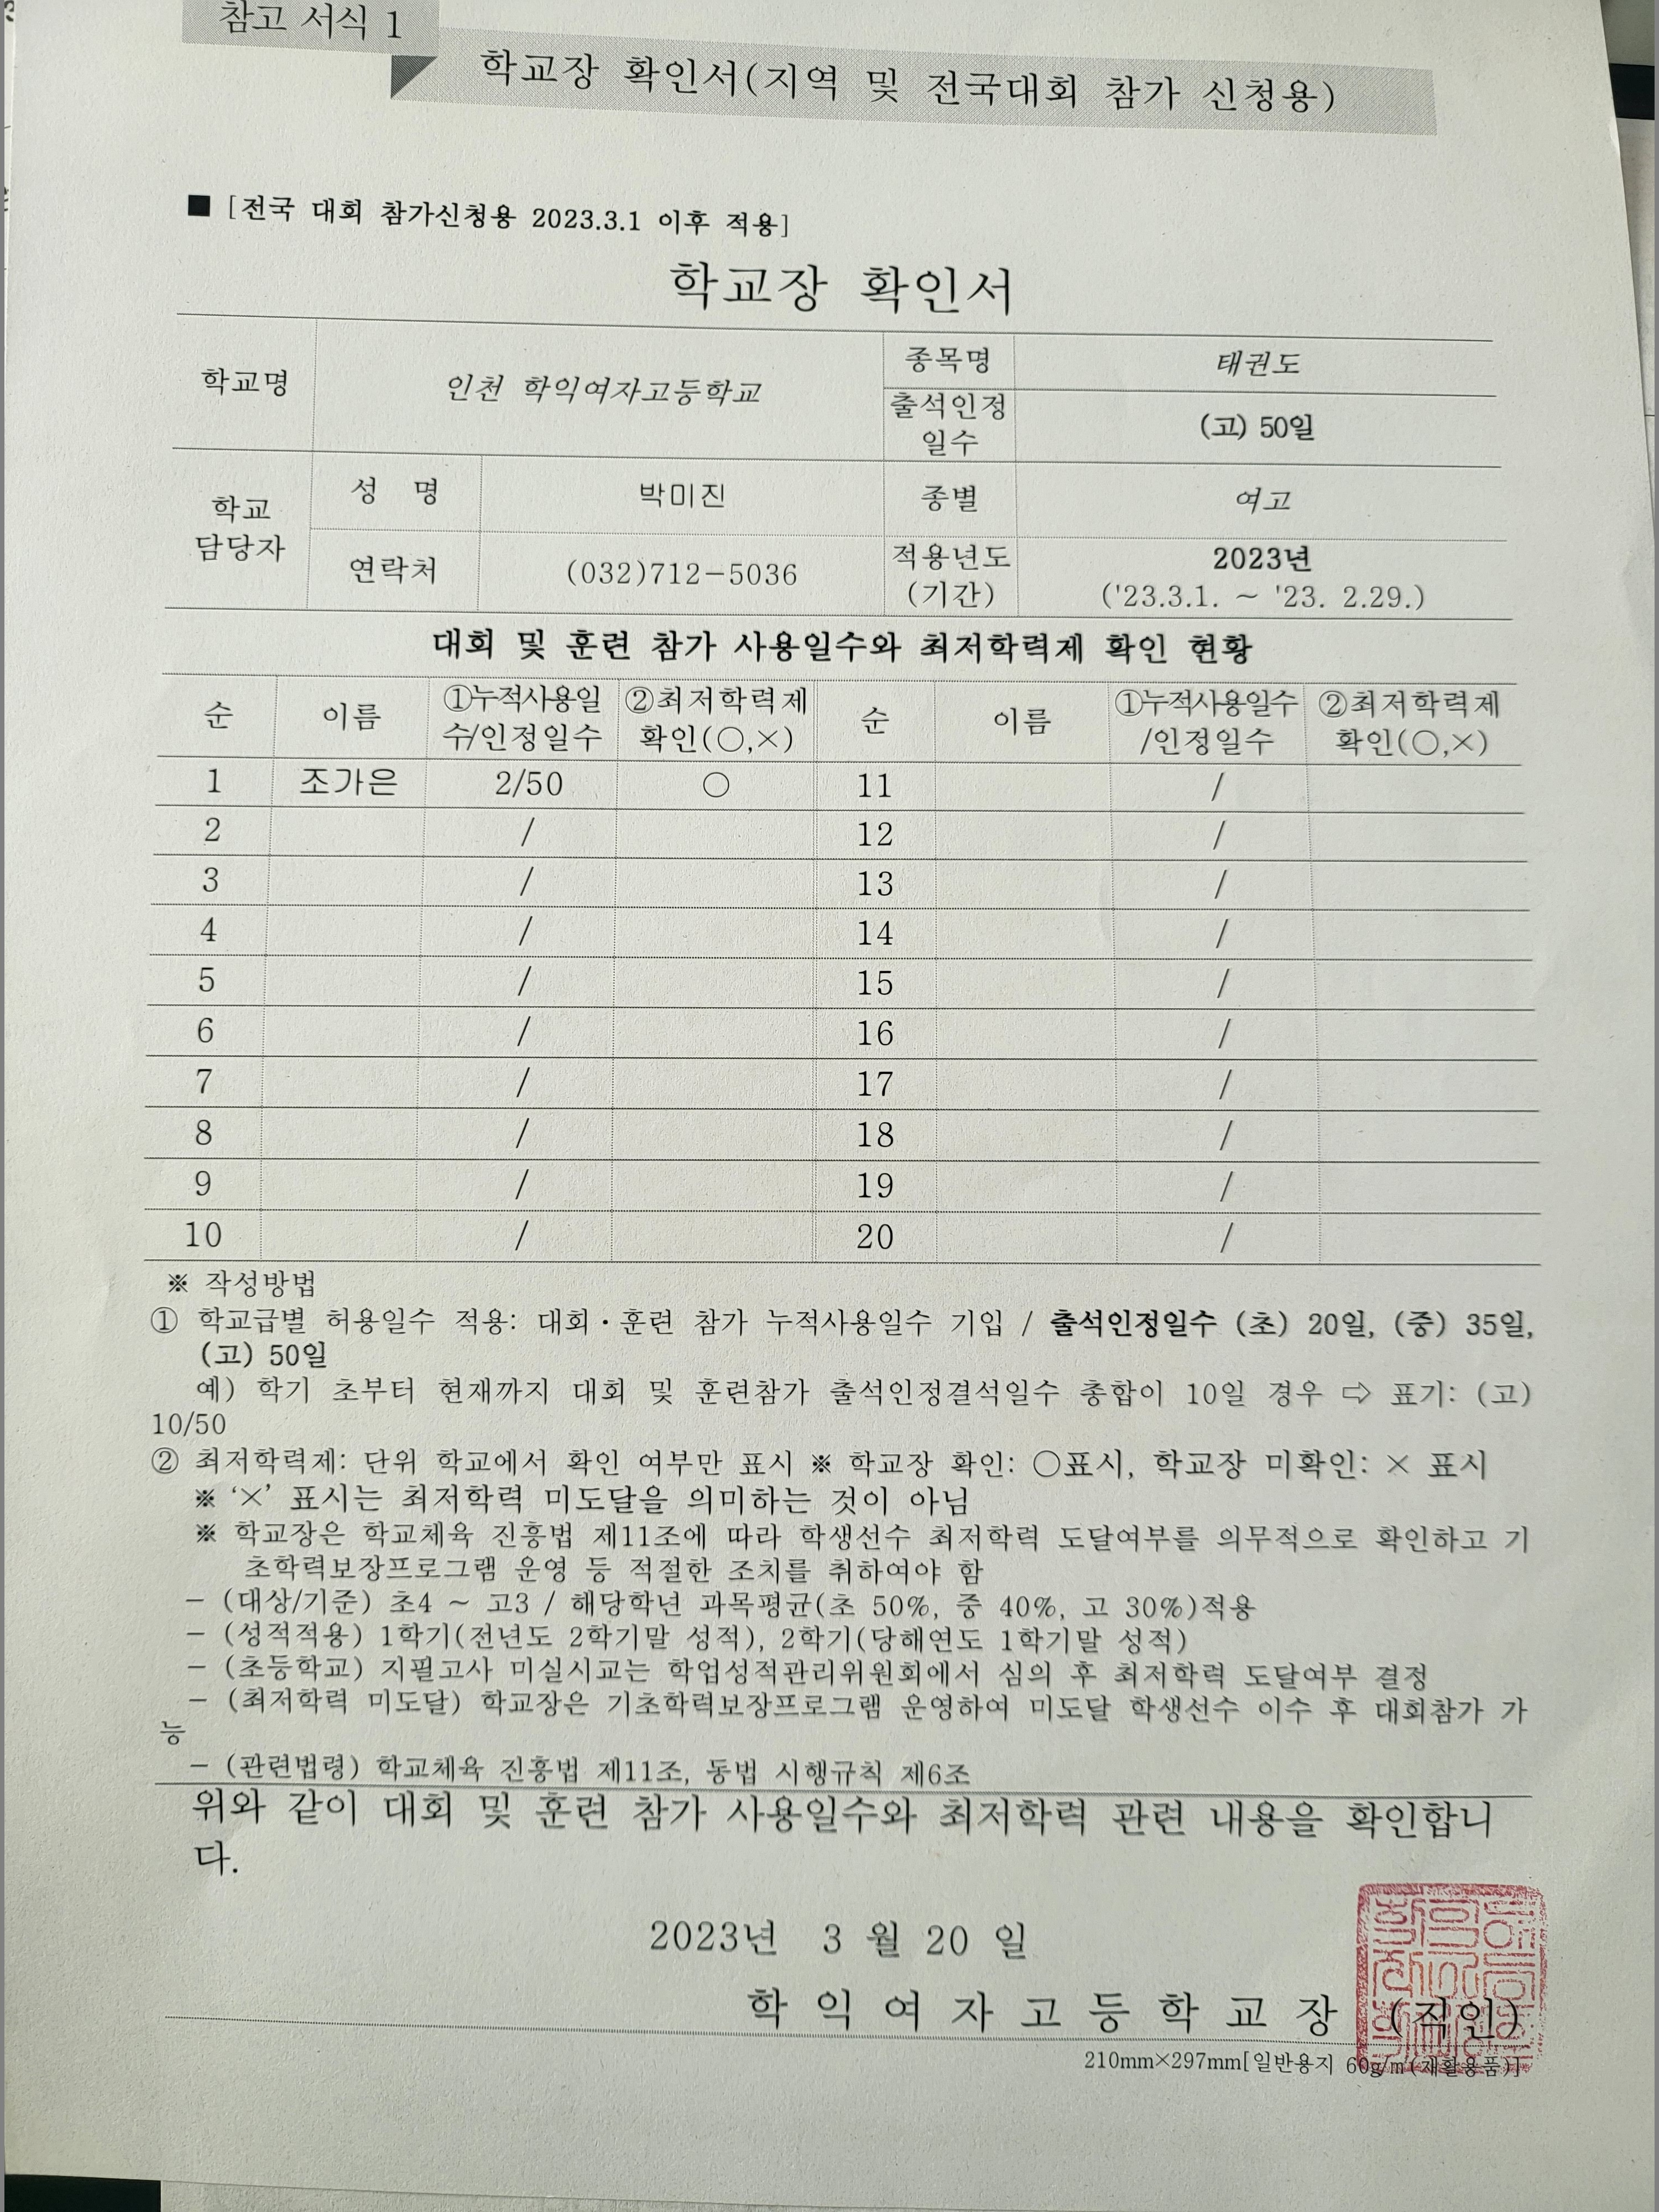 참고 서식 1
학교장 확인서(지역 및 전국대회 참가 신청용)
■ [전국 대회 참가신청용 2023.3.1 이후 적용]
학교장 확인서
학교명 인천 학익여자고등학교 종목명 태권도
출석인정 일수 (고) 50일
학교 담당자 성 명 박미진 종별 여고
연락처 (032)712-5036 적용년도 (기간) 2023년 ('23.3.1. ~ '23. 2.29.)
대회 및 훈련 참가 사용일수와 최저학력제 확인 현황
순 이름 ①누적사용일수/인정일수 ②최저학력제 확인(○,×) 순 이름 ①누적사용일수/인정일수 ②최저학력제 확인(○,×)
1 조가은 2/50 ○ 11 /
2 / 12 /
3 / 13 /
4 / 14 /
5 / 15 /
6 / 16 /
7 / 17 /
8 / 18 /
9 / 19 /
10 / 20 /
※ 작성방법
① 학교급별 허용일수 적용: 대회·훈련 참가 누적사용일수 기입 / 출석인정일수 (초) 20일, (중) 35일,
(고) 50일
예) 학기 초부터 현재까지 대회 및 훈련참가 출석인정결석일수 총합이 10일 경우 ⇨ 표기: (고)
10/50
② 최저학력제: 단위 학교에서 확인 여부만 표시 ※ 학교장 확인: ○표시, 학교장 미확인: × 표시
※ ‘×’ 표시는 최저학력 미도달을 의미하는 것이 아님
※ 학교장은 학교체육 진흥법 제11조에 따라 학생선수 최저학력 도달여부를 의무적으로 확인하고 기
초학력보장프로그램 운영 등 적절한 조치를 취하여야 함
- (대상/기준) 초4 ~ 고3 / 해당학년 과목평균(초 50%, 중 40%, 고 30%)적용
- (성적적용) 1학기(전년도 2학기말 성적), 2학기(당해연도 1학기말 성적)
- (초등학교) 지필고사 미실시교는 학업성적관리위원회에서 심의 후 최저학력 도달여부 결정
- (최저학력 미도달) 학교장은 기초학력보장프로그램 운영하여 미도달 학생선수 이수 후 대회참가 가
능
- (관련법령) 학교체육 진흥법 제11조, 동법 시행규칙 제6조
위와 같이 대회 및 훈련 참가 사용일수와 최저학력 관련 내용을 확인합니
다.
2023년 3 월 20 일
학 익 여 자 고 등 학 교 장 (직인)
210mm×297mm[일반용지 60g/㎡(재활용품)]